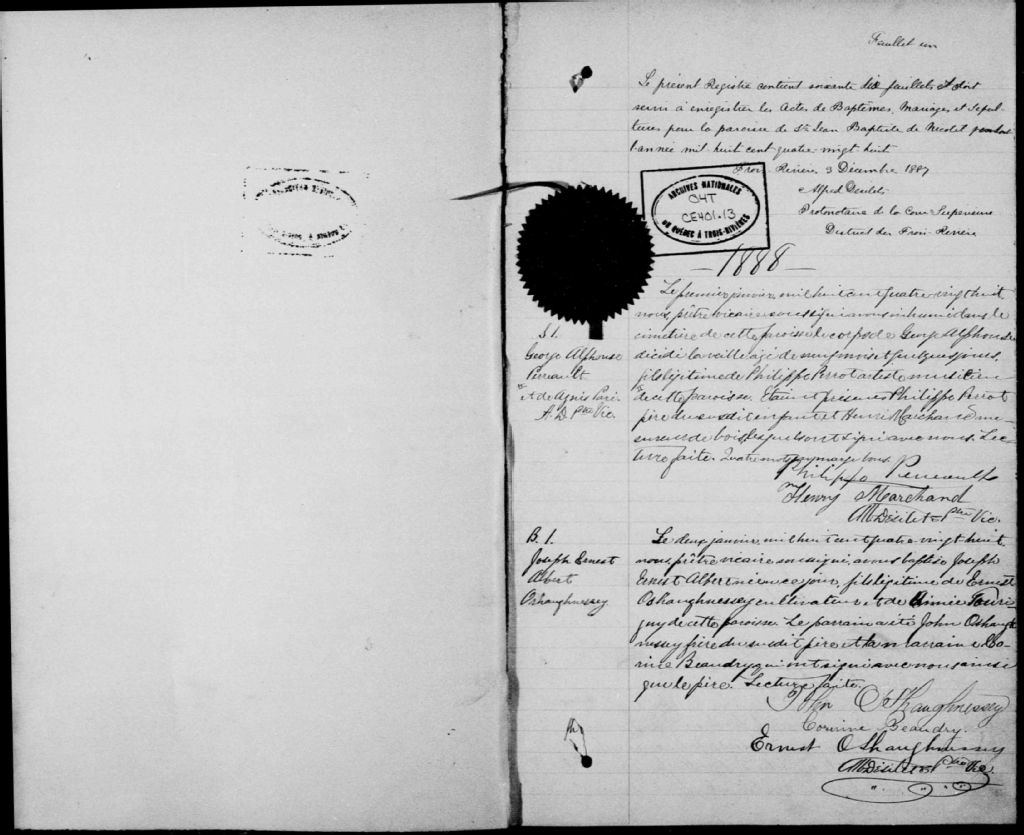 Feuillet un
Le présent Registre contient soixante dix feuillets et doit
servir à enregistrer les Actes de Baptêmes, Mariages et Sépul-
tures pour la paroisse de St. Jean Baptiste de Nicolet pendant
l'année mil huit cent quatre-vingt huit
Trois Rivières 3 Décembre 1887
Alfred Désilets
Protonotaire de la Cour Supérieure
District des Trois-Rivières
ARCHIVES NATIONALES
04T
CE401-13
DU QUÉBEC À TROIS-RIVIÈRES
—1888—
S 1.
George Alphonse
Perreault
et de Agnès
A. D. Ptre Vic.
Le premier janvier, mil huit cent quatre-vingt huit
nous, prêtre vicaire soussigné avons inhumé dans le
cimetière de cette paroisse le corps de George Alphonse
décédé la veille agé de neuf mois et quelques jours,
fils légitime de Philippe Perrot artiste musicien
de cette paroisse. Etaient présents Philippe Perrot
père du susdit enfant et Henri Marchand me-
sureur de bois, lesquels ont signé avec nous. Lec-
ture faite. Quatre mots en marge bons.
Philippe Perreault
Henry Marchand
Désilets Ptre Vic.
B. 1.
Joseph Ernest
Albert
Oshaughnessey
Le deux janvier, mil huit cent quatre-vingt huit
nous, prêtre vicaire soussigné, avons baptisé Joseph
Ernest Albert né en ce jour, fils légitime de Ernest
Oshaughnessey cultivateur et de Annie Touri-
gny de cette paroisse. Le parrain a été John Oshaugh-
nessey frère du susdit père et la marraine Co-
rine Beaudry qui ont signé avec nous ainsi
que le père. Lecture faite.
John O'Shaughnessey
Corinne Beaudry.
Ernest OShaughnessey
Désilets Ptre Vic.